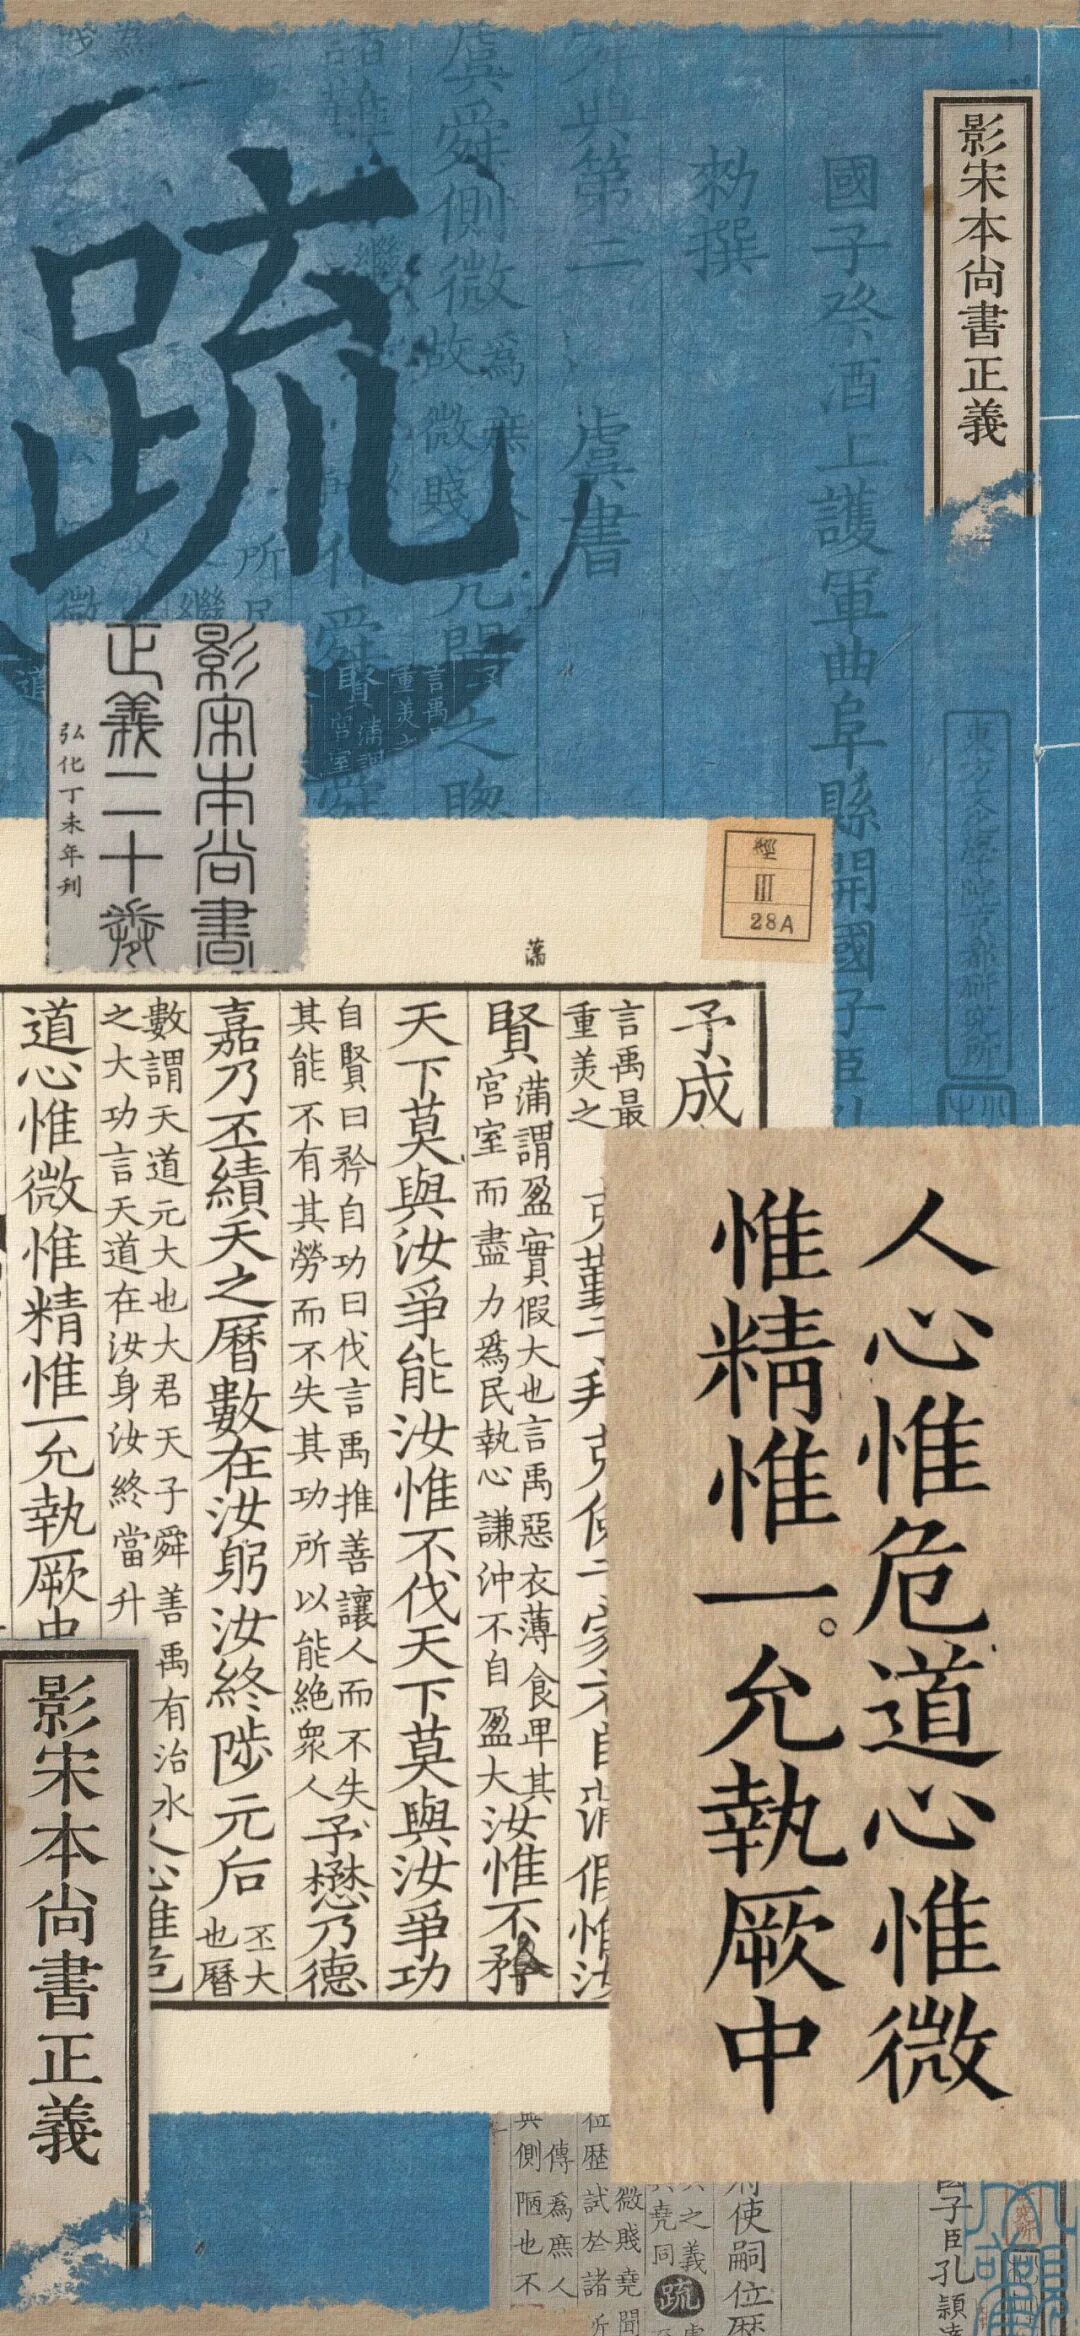 影宋本尚書正義
國子祭酒上護軍曲阜縣開國子臣
勑撰
舜典第二
虞書
虞舜側微
疏
影宋本尚書
正義二十卷
弘化丁未年刊
經
III
28A
予成
言禹最
重美之
賢
蒲謂盈實假大也言禹惡衣薄食卑其
宮室而盡力爲民執心謙沖不自盈大
汝惟不矜
天下莫與汝爭能汝惟不伐天下莫與汝爭功
自賢曰矜自功曰伐言禹推善讓人而不失
其能不有其勞而不失其功所以能絕衆人
予懋乃德
嘉乃丕績天之曆數在汝躬汝終陟元后
丕大
也曆
數謂天道元大也大君天子舜善禹有治水
之大功言天道在汝身汝終當升
人心惟危
道心惟微惟精惟一允執厥中
人心惟危道心惟微
惟精惟一。允執厥中
影宋本尚書正義
國子臣孔穎達
府使嗣位歷
之義
堯同
疏
微賤堯聞
位歷試於諸
傳爲庶人
側陋也不